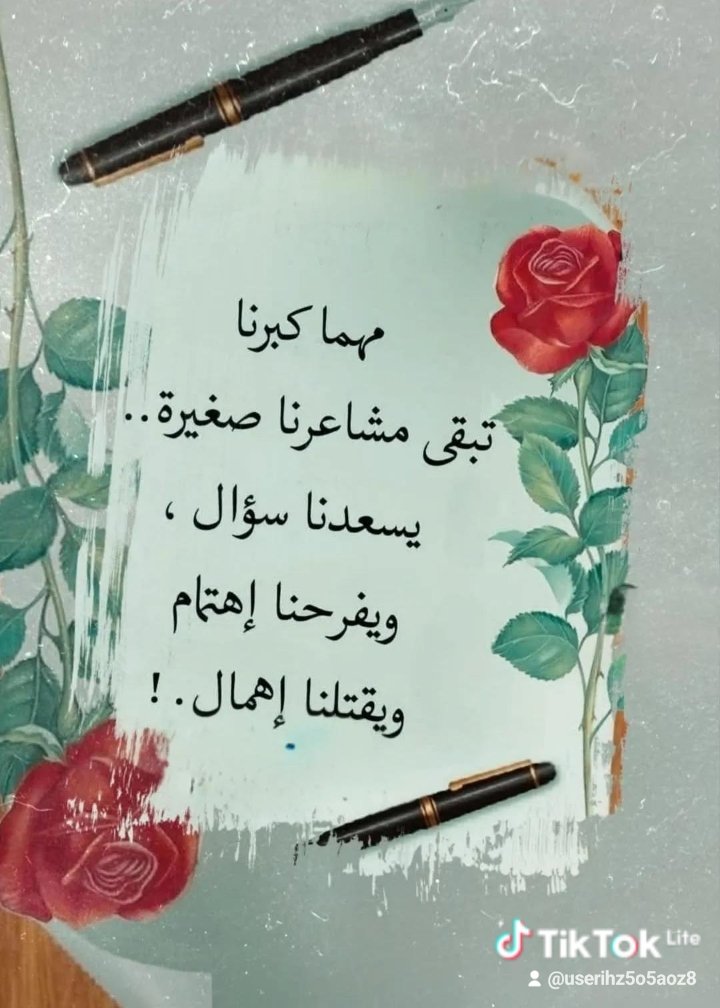 مهما كبرنا
تبقى مشاعرنا صغيرة..
يسعدنا سؤال ،
ويفرحنا إهتمام
ويقتلنا إهمال.!
TikTok Lite
@userihz5o5aoz8